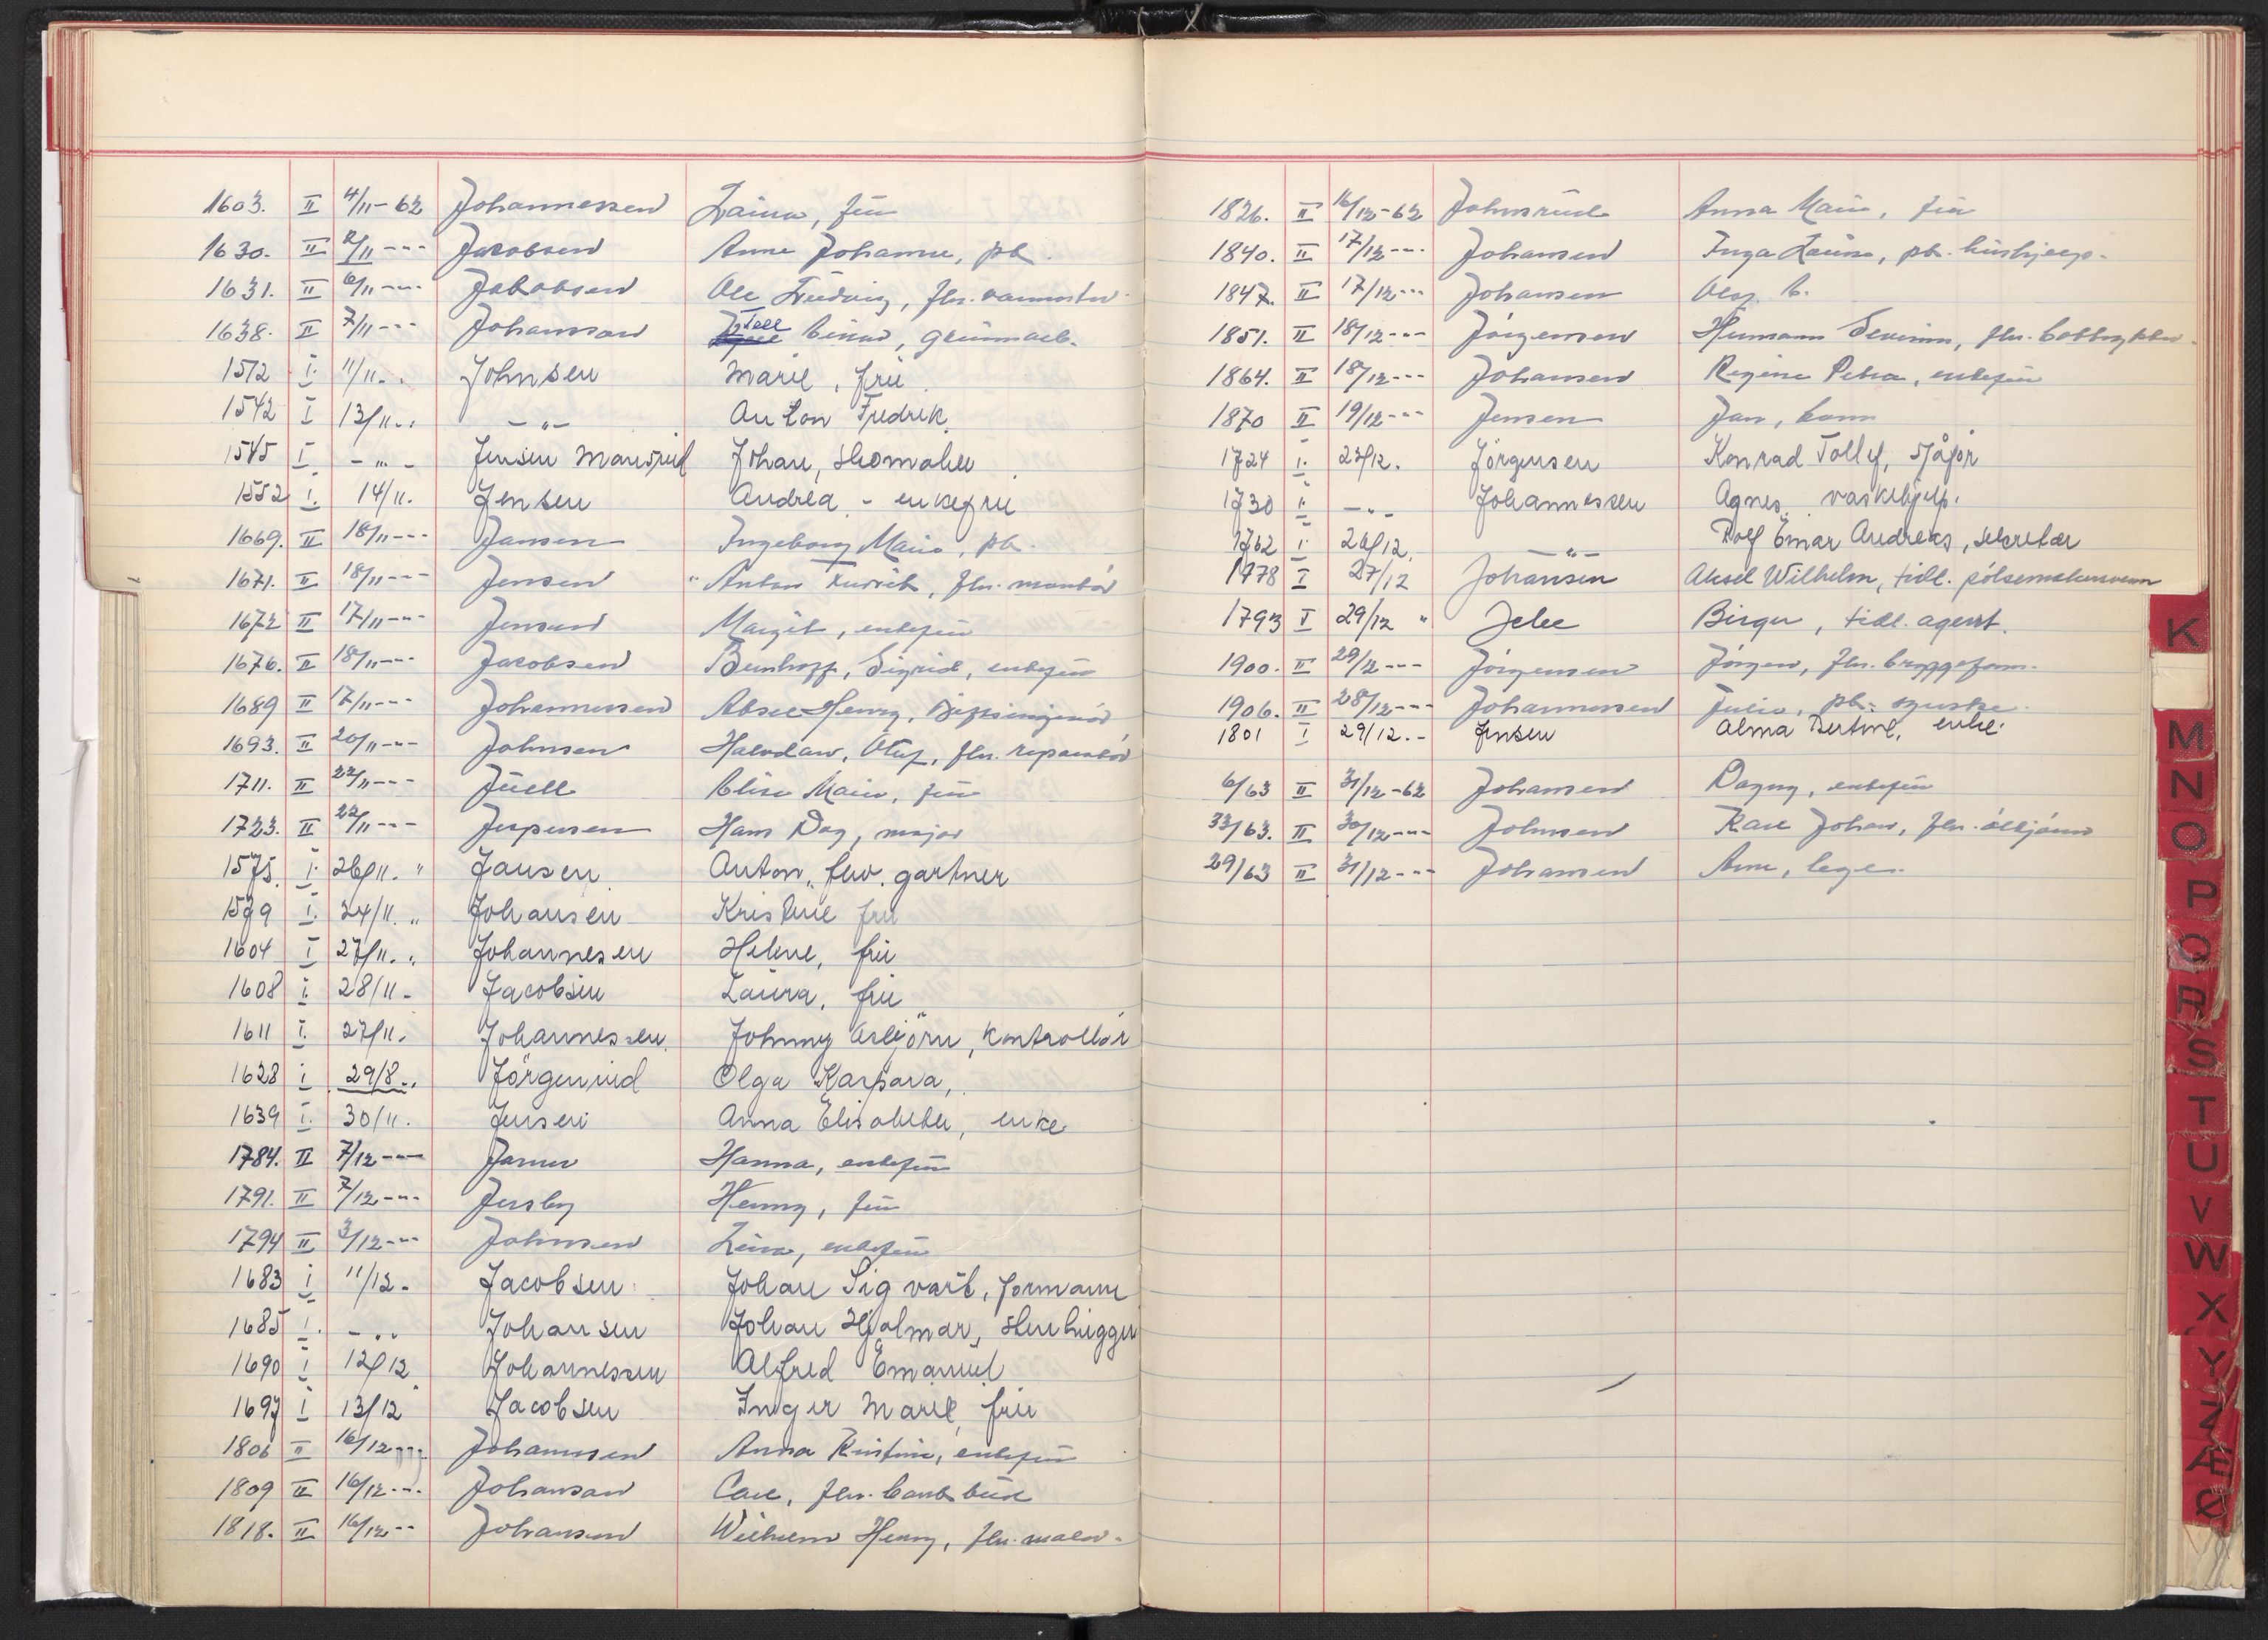 1603. II 4/11-62 Johannessen Laura, frü
1630. II 2/11 --- Jacobsen Anne Johanne, pb.
1631. II 6/11 --- Jakobsen Ole Ludvig, fhv.
1638. II 7/11 --- Johansson Tell Einar, grünnarb.
1512 I. 11/11.. Johnsen Marie, frü.
1542 I 13/11.. - " - Anton Fredrik.
1545 I. - " - Jensen Johan, skomaker
1552 I. 14/11. Jensen Andrea - enkefrü
1669. II 18/11 --- Jansen Ingeborg Marie, pb.
1671. II 18/11 --- Jensen Anton Fredrik, fhv. montör
1672 II 17/11 --- Jensen Margit, enkefrü
1676. II 18/11 --- Jacobsen Sigrid, enkefrü
1689 II 17/11 --- Johannessen Aksel Henry,
1693. II 20/11 --- Johnsen Halvdan, Olaf, fhv. reparatör
1711. II 22/11 --- Jüell Elise Marie, frü
1723. II 22/11 --- Jespersen Hans Dag, major
1575. I. 26/11. " Jansen Anton, fhv. gartner
1579 I. 24/11. " Johansen Kristine frü
1604 I 27/11. " Johannesen Helene, frü
1608 I. 28/11 - Jacobsen Laüra, frü
1611 I. 27/11. Johannessen Johnny Asbjörn, Kontrollör
1628 I 29/8.. Jörgenrud Olga Kaspara,
1639 I. 30/11. Jensen Anna Elisabeth, enke
1784. II 7/12 --- Hanna, enkefrü
1791. II 7/12 --- Jersby Henny, frü
1794 II 3/12 --- Johnsen enkefrü
1683 I 11/12 - Jacobsen Johan Sigvart, formann
1685 I. - " - Johansen Johan Hjalmar, stenhügger
1690 I 12/12 Johannessen Alfred Emanuel
1697 I 13/12 Jacobsen Inger Marie, frü
1806 II 16/12 --- Johannesen Anna Kristine, enkefrü
1809 II 16/12 --- Johansen Carl, fhv.
1818. II 16/12 -- Johansen Wilhelm Henry, fhv. maler.
1826. II 16/12-62 Johnsrüd Anna Marie, frü
1840. II 17/12 --- Johansen Inga Laüra, pb. hüshjelp.
1847. II 17/12 --- Johansen Olaf
1851. II 18/12 --- Jörgensen Hermann Severin, fhv.
1864. II 18/12 --- Johansen Regine Petra, enkefrü
1870 II 19/12 --- Jensen Jan, barn
1724 I. 23/12. Jörgensen Konrad Tollef, sjåför
1730 I. - " - Johannessen Agnes, vaskehjelp.
1762 I. 26/12. - " - Rolf Einar Andreas, sekretær
1778 I 27/12 Johansen Aksel Wilhelm, tidl. pölsemakersvenn
1793 I 29/12 " Jelee Birger, tidl. agent.
1900. II 29/12 --- Jörgensen Jörgen, fhv. bryggeform.
1906. II 28/12 --- Johannessen Julie, pb. syerske.
1801 I 29/12. - Jensen Alma Bertine, enke.
6/63 II 31/12-62 Johansen Dagny, enkefrü
33/63. II 30/12 --- Johnsen Karl Johan, fhv. ölkjörer
29/63 II 31/12 --- Johansen Arne, lege.
K
M
N
O
P
Q
R
S
T
U
V
W
X
Y
Z
Æ
Ø